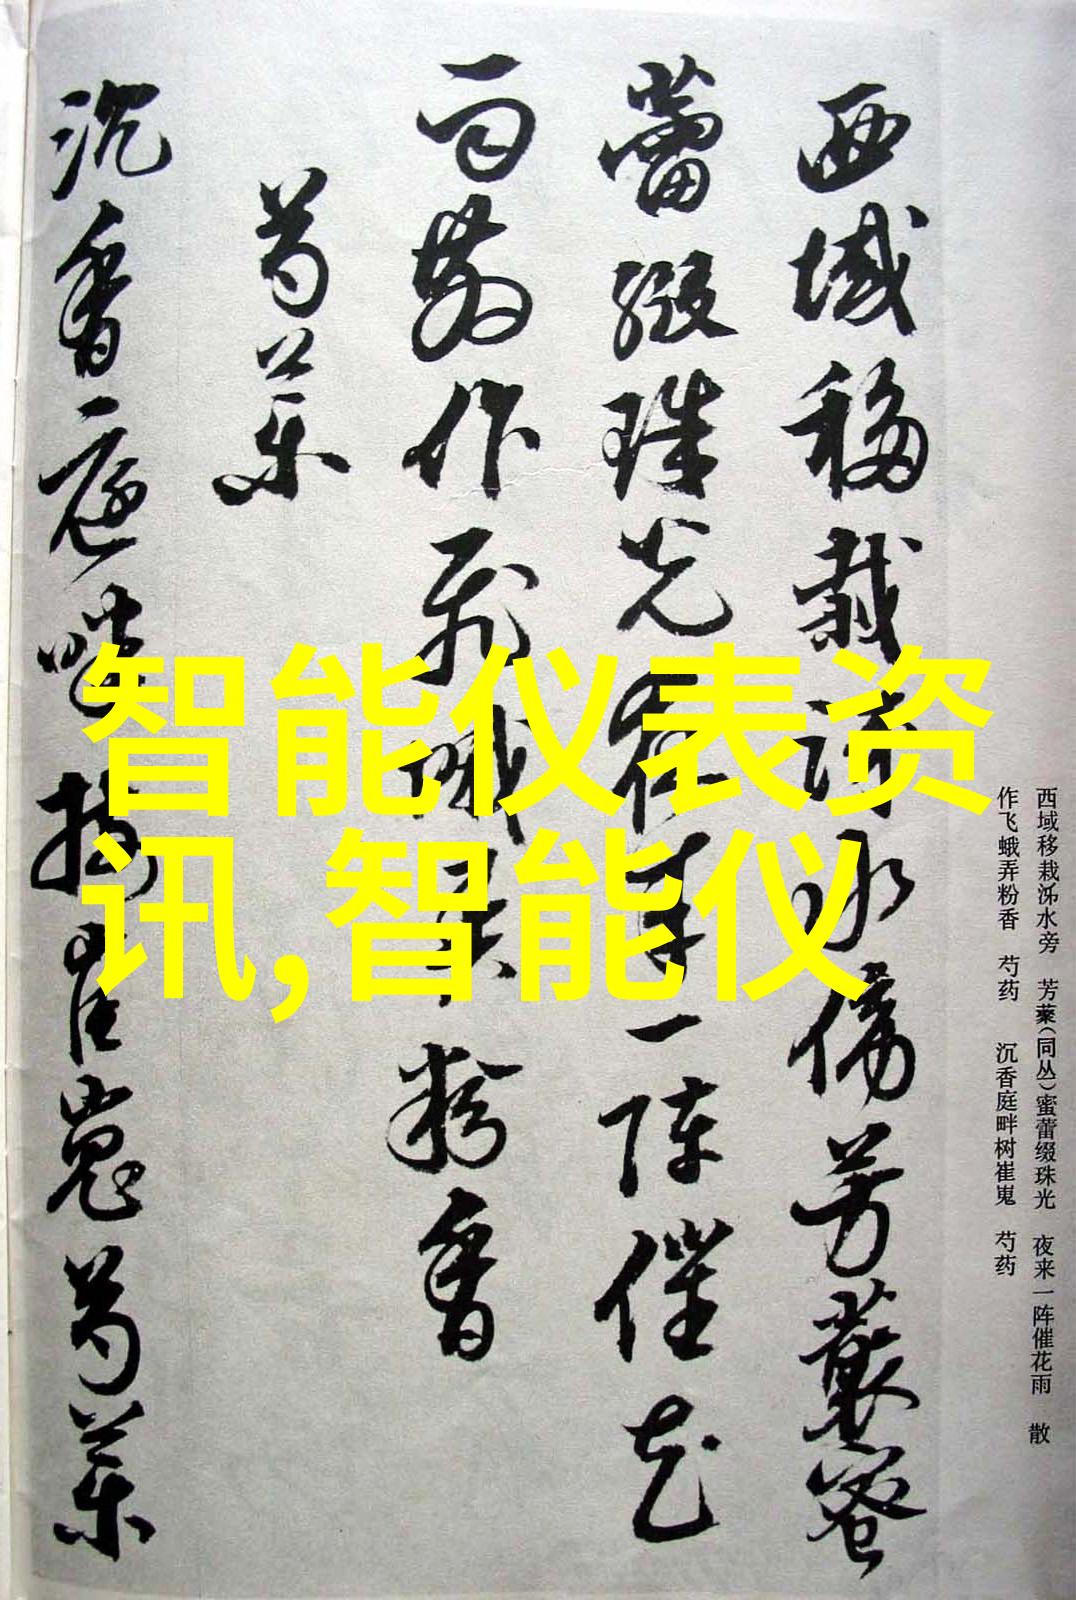 西域移栽泲水傍芳藂蜜
蕾缀珠光夜来一阵催花
雨散作飞蛾弄粉香
芍药
沉香庭畔树崔嵬芍药
智能仪表资
讯,智能仪
西域移栽泲水旁 芳藂(同丛)蜜蕾缀珠光 夜来一阵催花雨 散
作飞蛾弄粉香 芍药 沉香庭畔树崔嵬 芍药